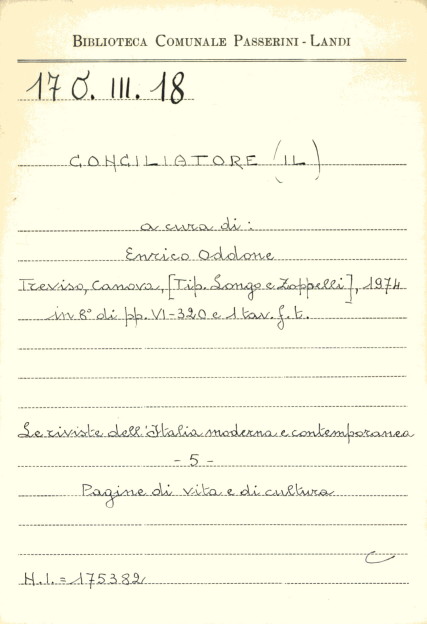 BIBLIOTECA COMUNALE PASSERINI - LANDI
17 O. III. 18
CONCILIATORE (IL)
a cura di :
Enrico Oddone
Treviso, Canova, [Tip. Longo e Zoppelli], 1974
in 8° di pp. VI-320 e 1 tav. f. t.
Le riviste dell'Italia moderna e contemporanea
- 5 -
Pagine di vita e di cultura
C
N.I. = 175382